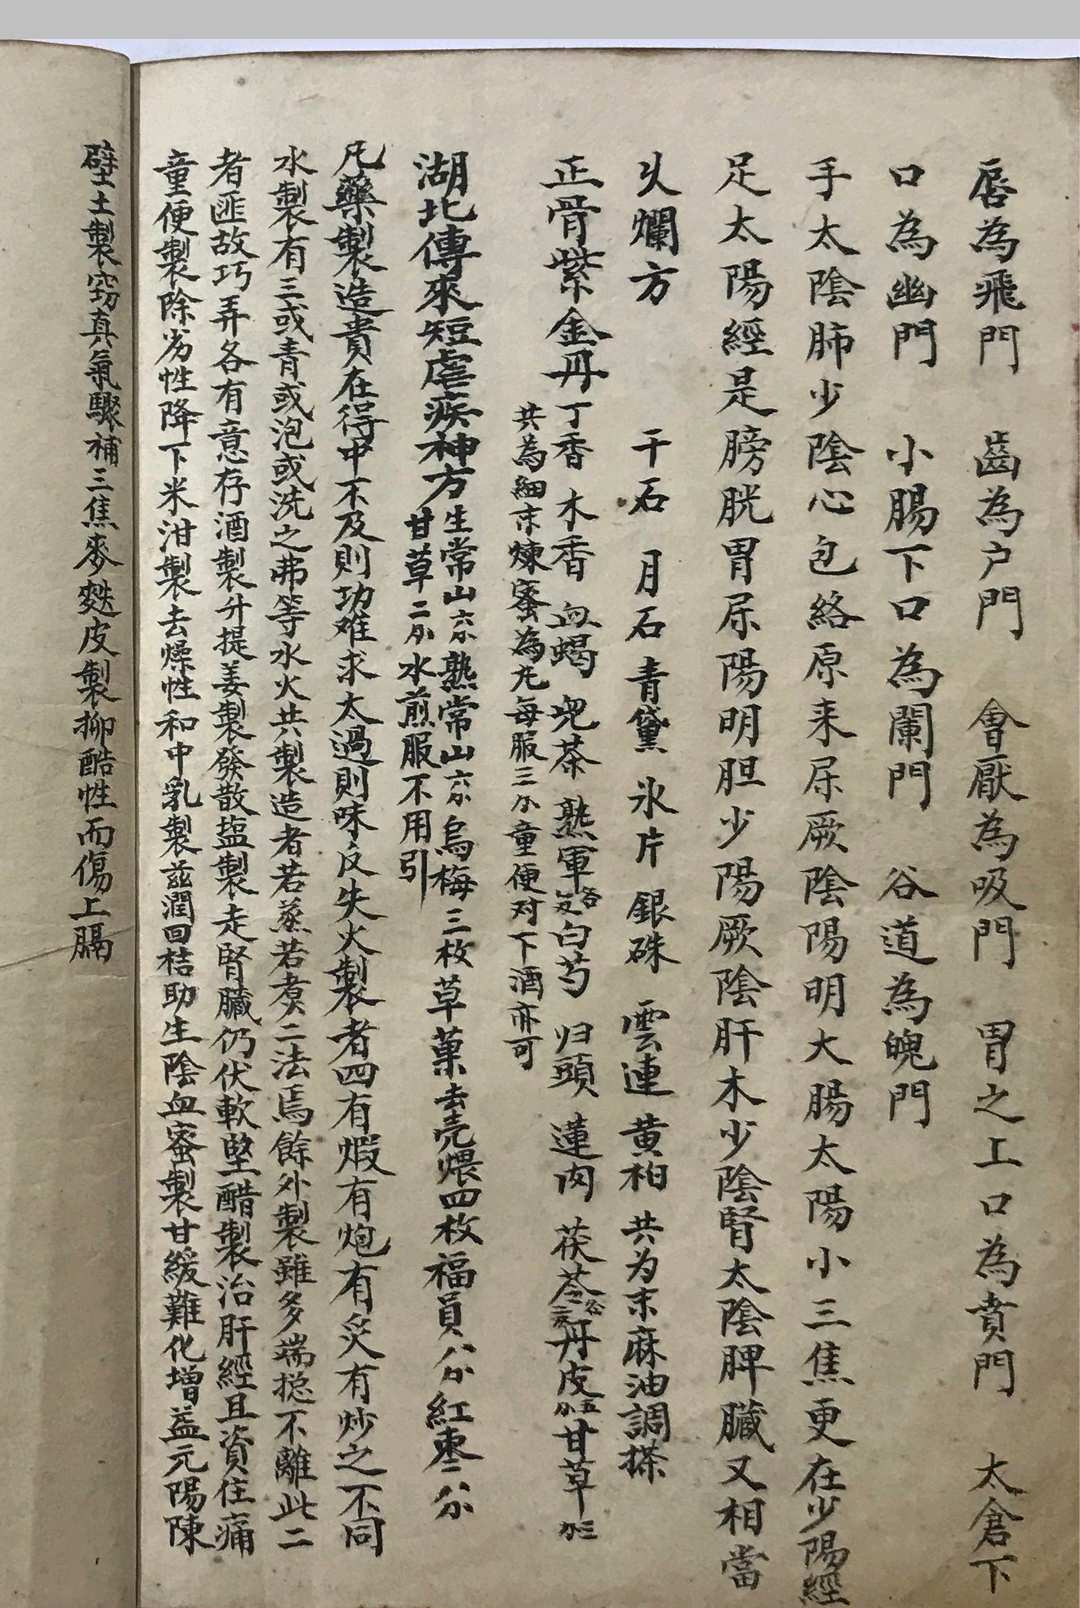 唇為飛門　齒為户門　會厭為吸門　胃之上口為賁門　太倉下
口為幽門　小腸下口為闌門　谷道為魄門
手太陰肺少陰心包絡原来厥陰陽明大腸太陽小三焦更在少陽經
足太陽經是膀胱胃属陽明胆少陽厥陰肝木少陰腎太陰脾臟又相當
乆爛方　干石　月石　青黛　氷片　銀硃　雲連　黄柏　共为末麻油調搽
正骨紫金丹　丁香　木香　血蝎　児茶　熟軍　白芍　归頭　蓮肉　茯苓　丹皮　甘草
共為細末煉蜜為丸每服三分童便对下酒亦可
湖北傳來短虐疾神方　生常山六分　熟常山六分　烏梅三枚　草菓去壳煨四枚　福員八分　紅枣二分
甘草二分　水煎服不用引
凡藥製造貴在得中不及則功难求太過則味反失火製者四有煆有炮有炙有炒之不同
水製有三或青或泡或洗之弗等水火共製造者若蒸若煮二法焉餘外製雖多端捴不離此二
者匪故巧弄各有意存酒製升提姜製發散盐製走腎臓仍伏軟堅醋製治肝經且資住痛
童便製除劣性降下米泔製去燥性和中乳製兹潤回枯助生陰血蜜製甘緩難化增益元陽陳
壁土製窃真氣驟補三焦麥麩皮製抑酷性而傷上膈